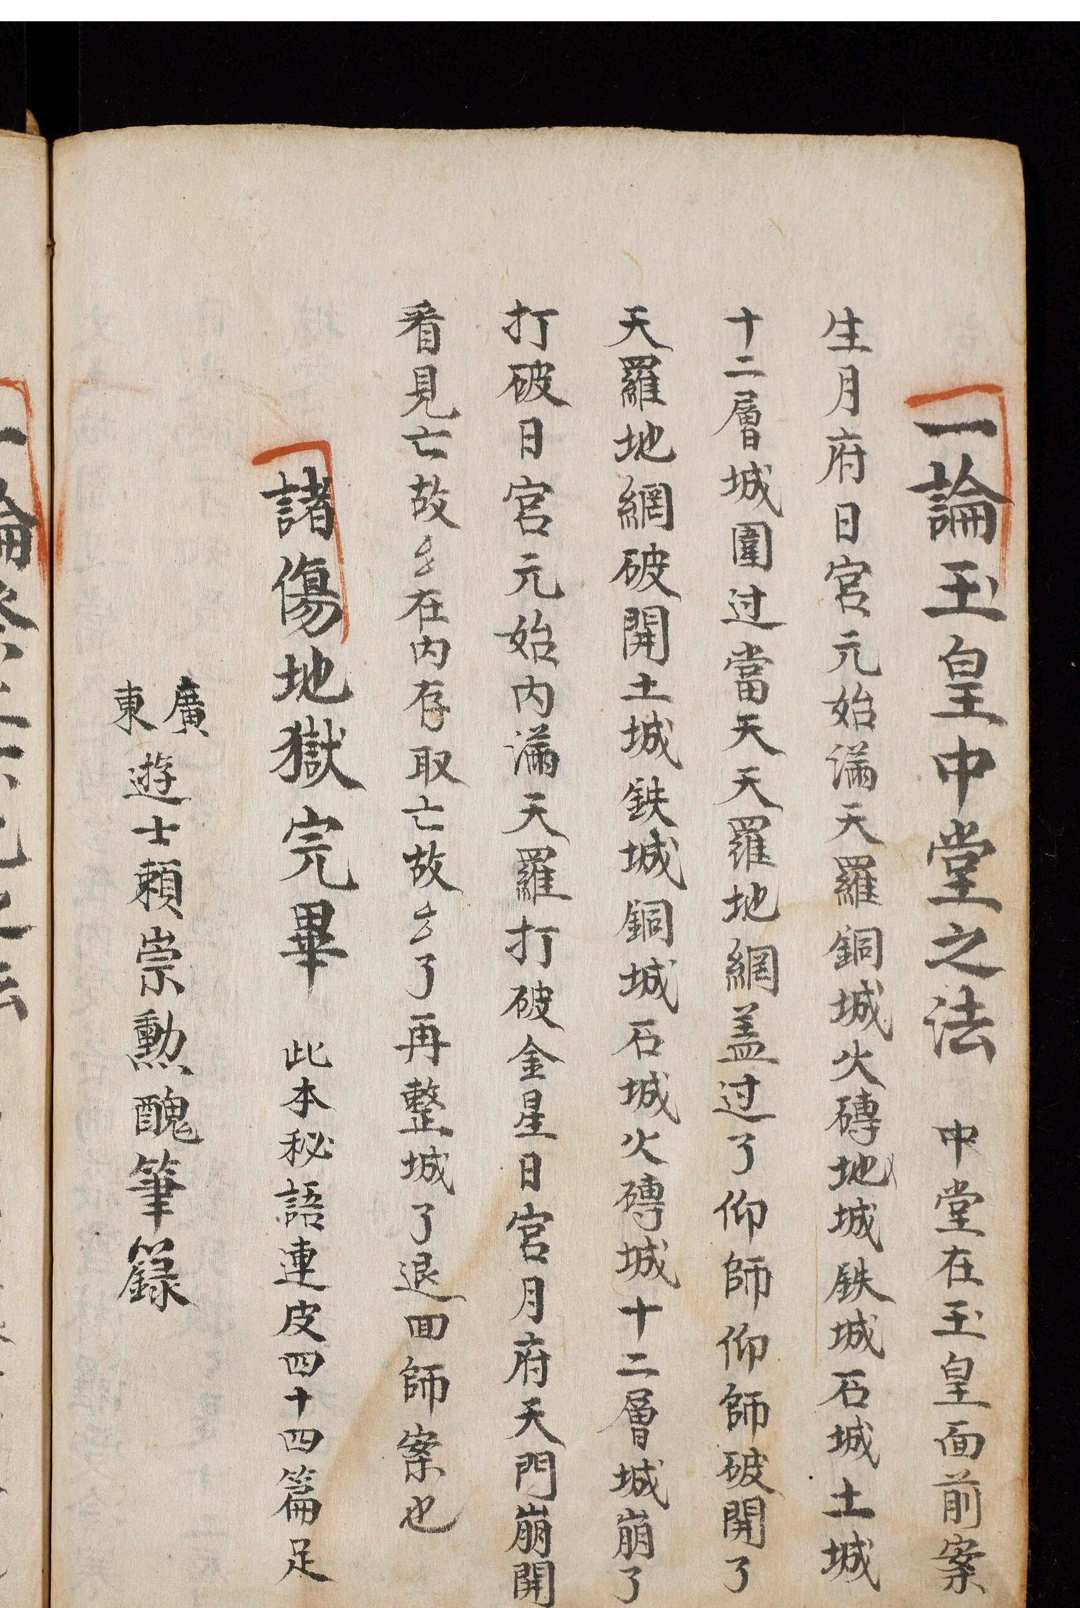 一論玉皇中堂之法 中堂在玉皇面前案
生月府日宮元始滿天羅銅城火磚地城鉄城石城土城
十二層城圍过當天天羅地網盖过了仰師仰師破開了
天羅地網破開土城鉄城銅城石城火磚城十二層城崩了
打破日宮元始内滿天羅打破金星日宮月府天門崩開
看見亡故在内存取亡故了再整城了退回師案也
諸傷地獄完畢 此本秘語連皮四十四篇足
廣東遊士賴崇勳醜筆録